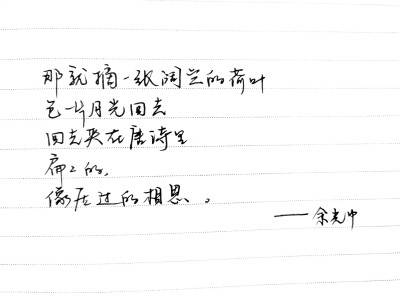 那就摘一张阔些的荷叶
包一片月光回去
回去夹在唐诗里
扁扁的,
像压过的相思。
——余光中